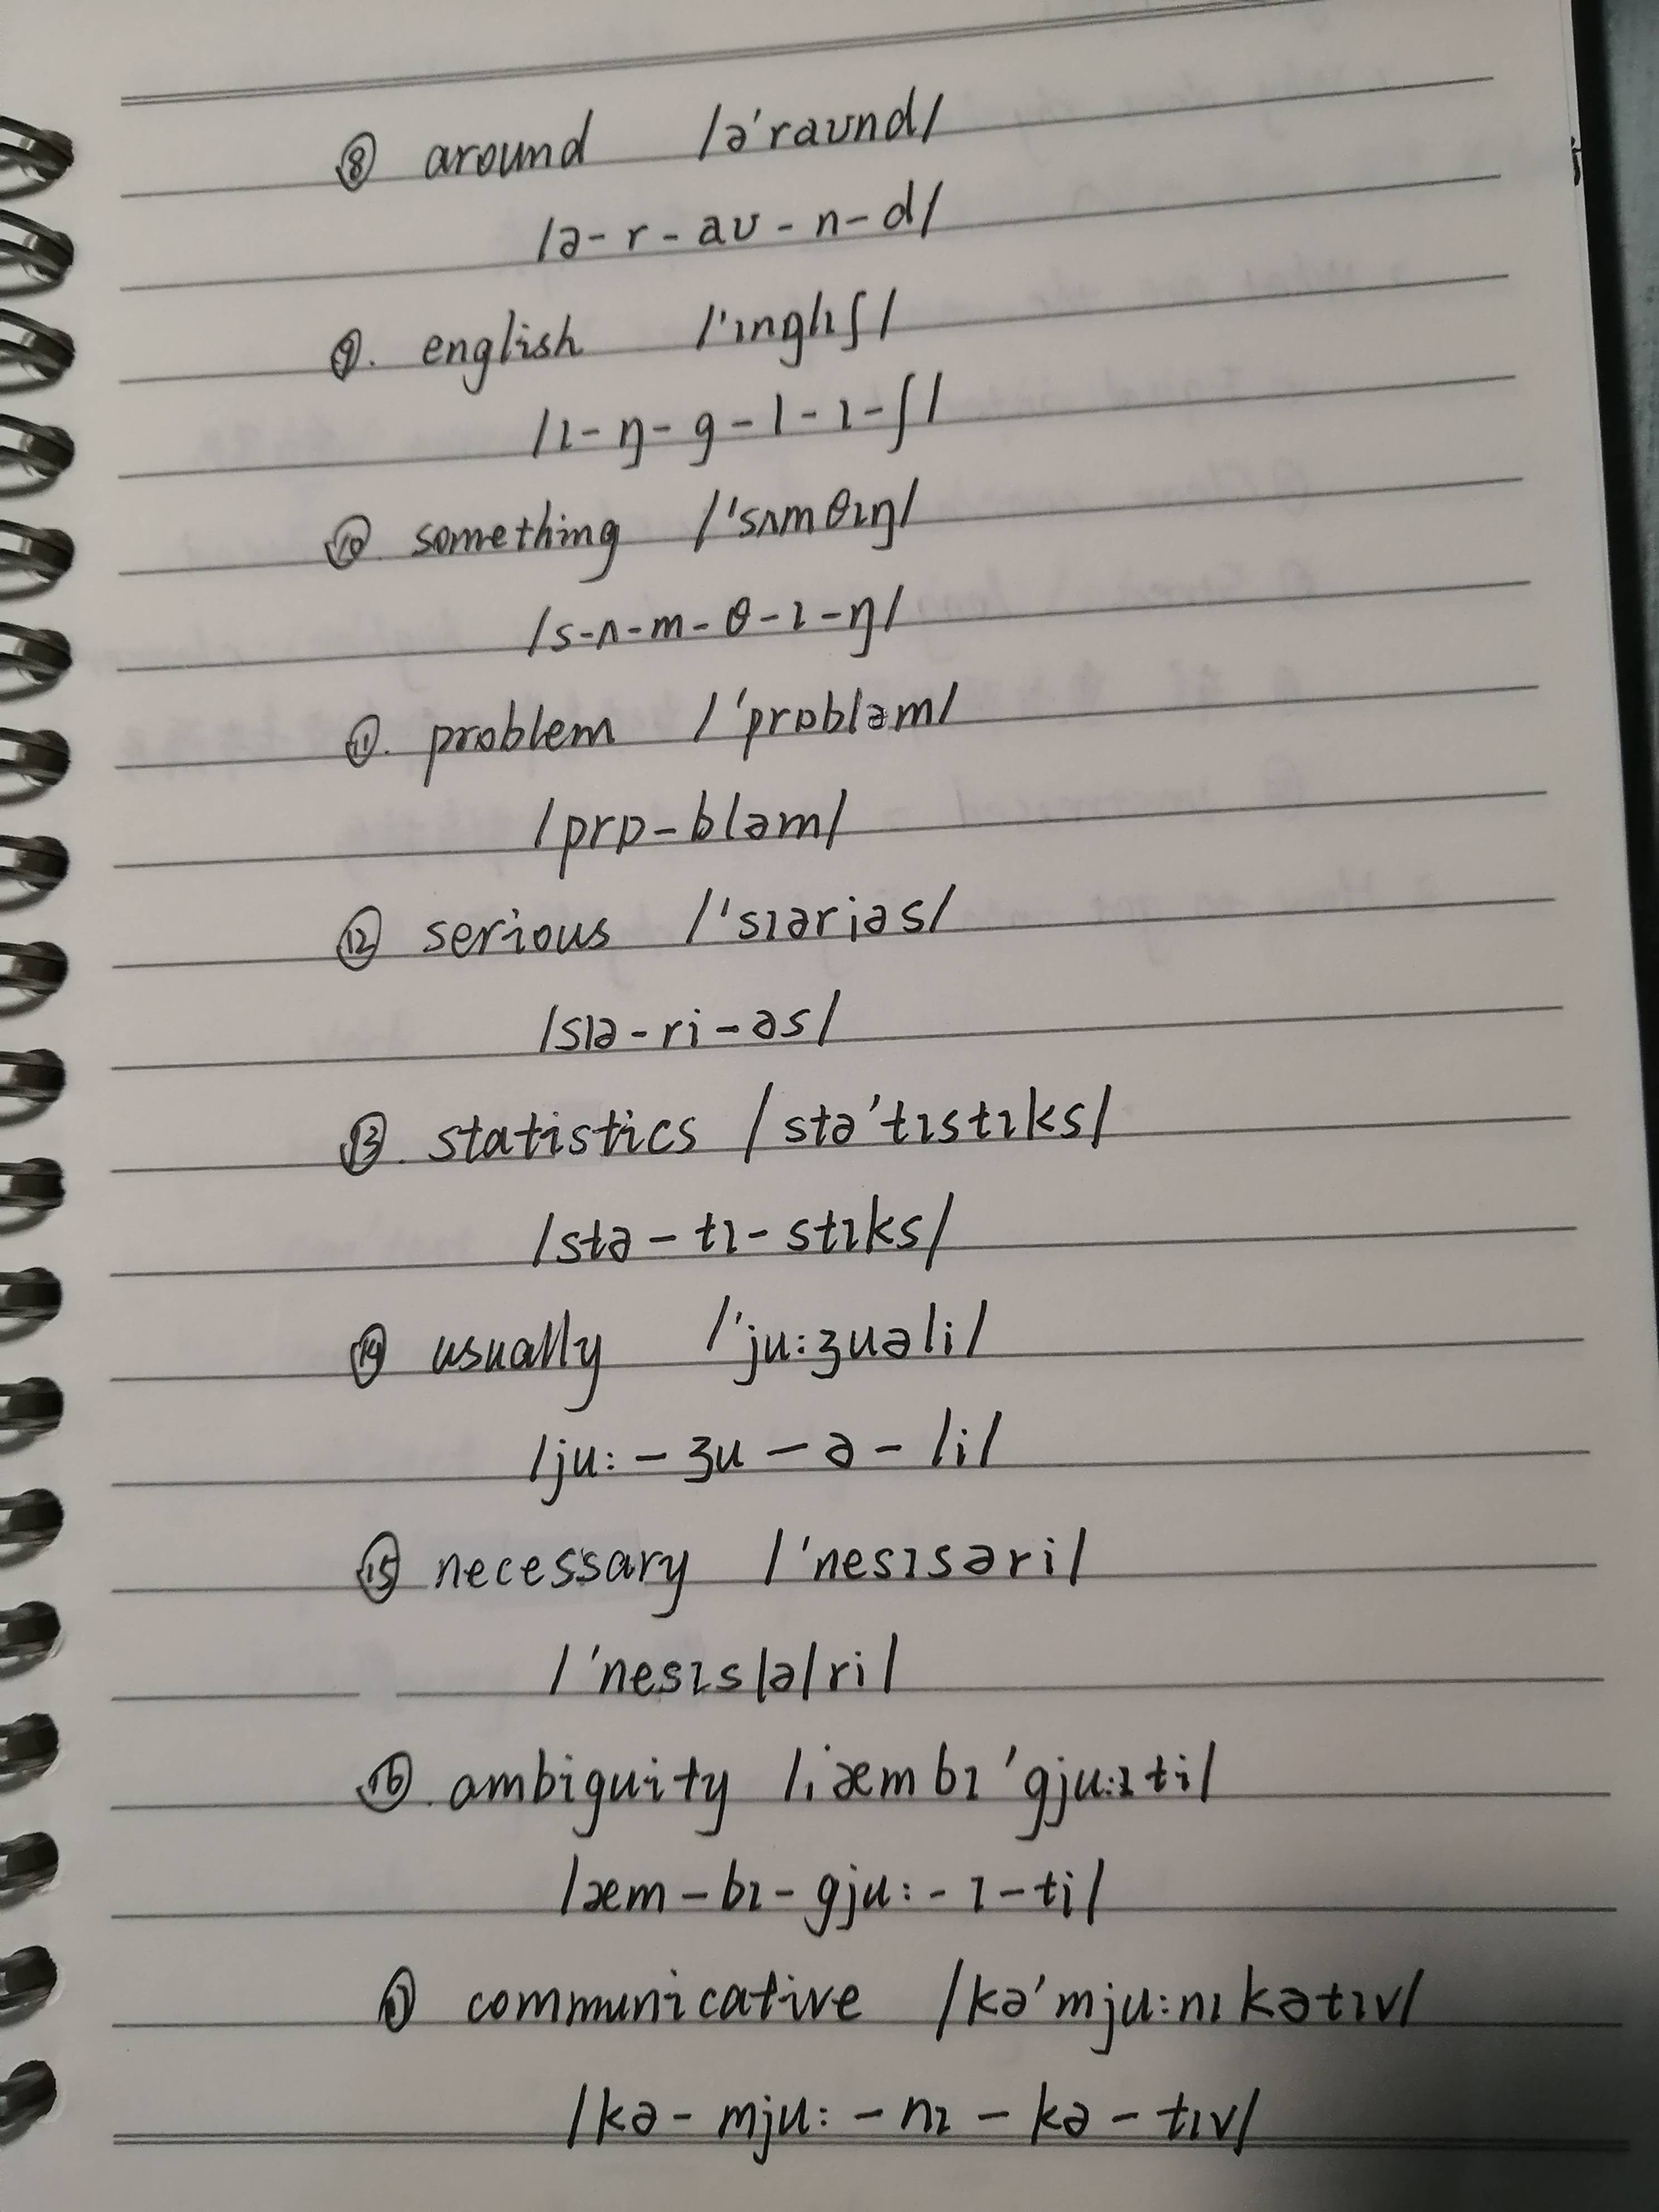 ⑧ around /ə'raʊnd/
/ə-r-aʊ-n-d/
⑨. english /'ɪnglɪʃ/
/ɪ-ŋ-g-l-ɪ-ʃ/
⑩ something /'sʌmθɪŋ/
/s-ʌ-m-θ-ɪ-ŋ/
⑪. problem /'prɒbləm/
/prɒ-bləm/
⑫ serious /'sɪəriəs/
/sɪə-ri-əs/
⑬. statistics /stə'tɪstɪks/
/stə-tɪ-stɪks/
⑭ usually /'ju:ʒuəli/
/ju:-ʒu-ə-li/
⑮ necessary /'nesɪsəri/
/'nesɪs/ə/ri/
⑯. ambiguity /ˌæmbɪ'gju:ɪti/
/æm-bɪ-gju:-ɪ-ti/
⑰ communicative /kə'mju:nɪkətɪv/
/kə-mju:-nɪ-kə-tɪv/